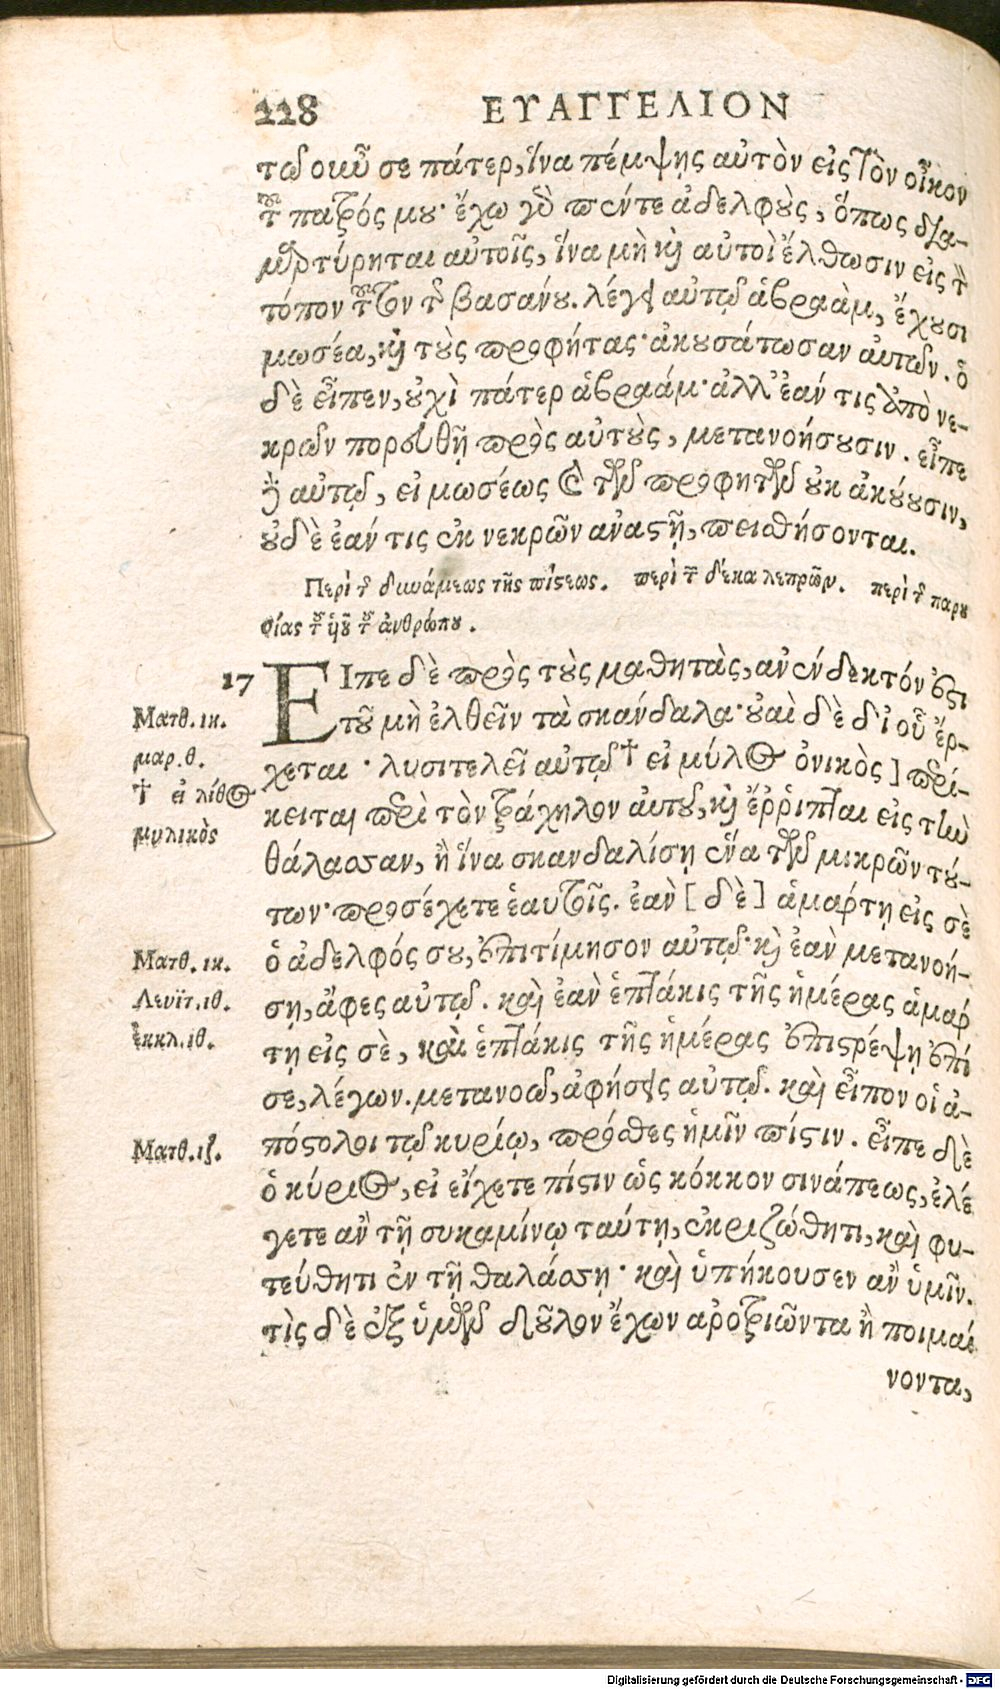 228 ΕΥΑΓΓΕΛΙΟΝ
τῶ οὖν σε πάτερ, ἵνα πέμψῃς αὐτὸν εἰς τὸν οἶκον
τοῦ πατρός μου· ἔχω γὸ πέντε ἀδελφοὺς, ὅπως δια-
μαρτύρηται αὐτοῖς, ἵνα μὴ καὶ αὐτοὶ ἔλθωσιν εἰς τὸν
τόπον τοῦτον τῆς βασάνου. λέγει αὐτῷ ἀβραὰμ, ἔχουσι
μωσέα, καὶ τοὺς προφήτας· ἀκουσάτωσαν αὐτῶν. ὁ
δὲ εἶπεν, οὐχὶ πάτερ ἀβραάμ· ἀλλ' ἐάν τις ἀπὸ νε-
κρῶν πορευθῇ πρὸς αὐτοὺς, μετανοήσουσιν. εἶπε
δὲ αὐτῷ, εἰ μωσέως καὶ τῶν προφητῶν οὐκ ἀκούουσιν,
οὐδὲ ἐάν τις ἐκ νεκρῶν ἀναστῇ, πειαθήσονται.
Περὶ τῆς δυνάμεως τῆς πίστεως. περὶ τῶν δέκα λεπρῶν. περὶ τῆς παρου
σίας τοῦ ὑιοῦ τοῦ ἀνθρώπου.
17 ΕΙπε δὲ πρὸς τοὺς μαθητὰς, ἀνένδεκτόν ἐστι
Ματθ. ιη. τοῦ μὴ ἐλθεῖν τὰ σκάνδαλα· οὐαὶ δὲ δι' οὗ ἔρ-
μαρ. θ. χεται · λυσιτελεῖ αὐτῷ † εἰ μύλος ὀνικὸς ] περί-
† εἰ λίθος κειται περὶ τὸν τράχηλον αὐτοῦ, καὶ ἔῤῥιπται εἰς τὴν
μυλικὸς θάλασσαν, ἢ ἵνα σκανδαλίσῃ ἕνα τῶν μικρῶν τού-
των· προσέχετε ἑαυτοῖς. ἐὰν [ δὲ ] ἁμαρτῃ εἰς σὲ
Ματθ. ιη. ὁ ἀδελφός σου, ἐπιτίμησον αὐτῷ· καὶ ἐὰν μετανοή-
Λευϊτ. ιθ. σῃ, ἄφες αὐτῷ. καὶ ἐὰν ἑπτάκις τῆς ἡμέρας ἁμαρ
ἐκκλ. ιθ. τῃ εἰς σὲ, καὶ ἑπτάκις τῆς ἡμέρας ἐπιστρέψῃ ἐπί
σε, λέγων. μετανοῶ, ἀφήσεις αὐτῷ. καὶ εἶπον οἱ ἀ-
Ματθ. ιζ. πόστολοι τῷ κυρίῳ, πρόσθες ἡμῖν πίστιν. εἶπε δὲ
ὁ κύριος, εἰ εἴχετε πίστιν ὡς κόκκον σινάπεως, ἐλέ
γετε ἂν τῇ συκαμίνῳ ταύτῃ, ἐκριζώθητι, καὶ φυ-
τεύθητι ἐν τῇ θαλάσσῃ· καὶ ὑπήκουσεν ἂν ὑμῖν.
τὶς δὲ ἐξ ὑμῶν δοῦλον ἔχων ἀροτριῶντα ἢ ποιμαί
νοντα,
Digitalisierung gefördert durch die Deutsche Forschungsgemeinschaft - DFG